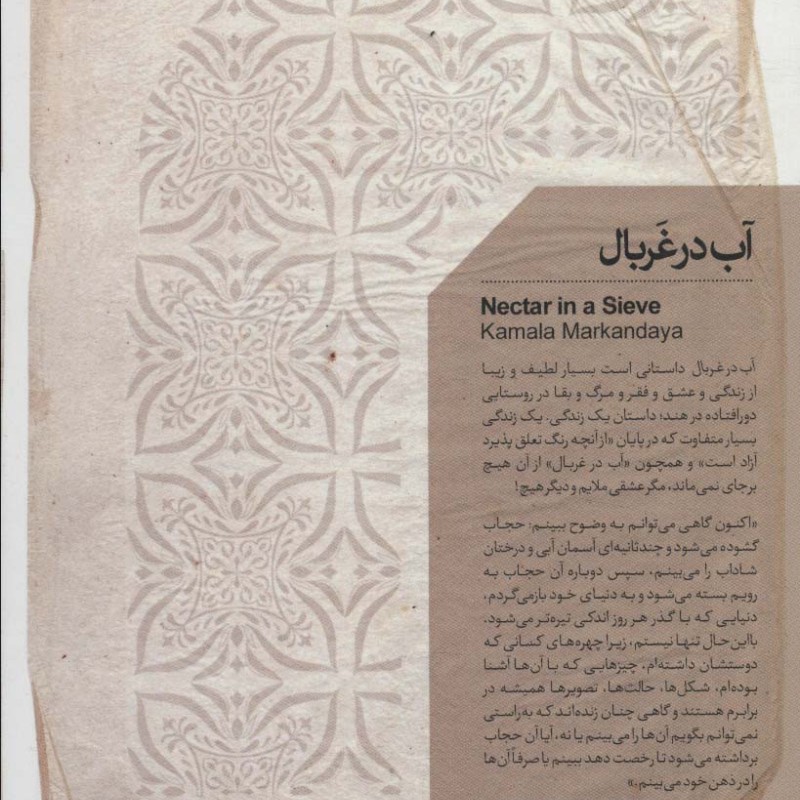 آب در غَربال
Nectar in a Sieve
Kamala Markandaya
آب در غربال داستانی است بسیار لطیف و زیبا
از زندگی و عشق و فقر و مرگ و بقا در روستایی
دورافتاده در هند؛ داستان یک زندگی. یک زندگی
بسیار متفاوت که در پایان «از آنچه رنگ تعلق پذیرد
آزاد است» و همچون «آب در غربال» از آن هیچ
برجای نمی‌ماند، مگر عشقی ملایم و دیگر هیچ!
«اکنون گاهی می‌توانم به وضوح ببینم: حجاب
گشوده می‌شود و چند ثانیه‌ای آسمان آبی و درختان
شاداب را می‌بینم، سپس دوباره آن حجاب به
رویم بسته می‌شود و به دنیای خود بازمی‌گردم،
دنیایی که با گذر هر روز اندکی تیره‌تر می‌شود.
بااین‌حال تنها نیستم، زیرا چهره‌های کسانی که
دوستشان داشته‌ام، چیزهایی که با آن‌ها آشنا
بوده‌ام، شکل‌ها، حالت‌ها، تصویرها همیشه در
برابرم هستند و گاهی چنان زنده‌اند که به‌راستی
نمی‌توانم بگویم آن‌ها را می‌بینم یا نه، آیا آن حجاب
برداشته می‌شود تا رخصت دهد ببینم یا صرفاً آن‌ها
را در ذهن خود می‌بینم.»